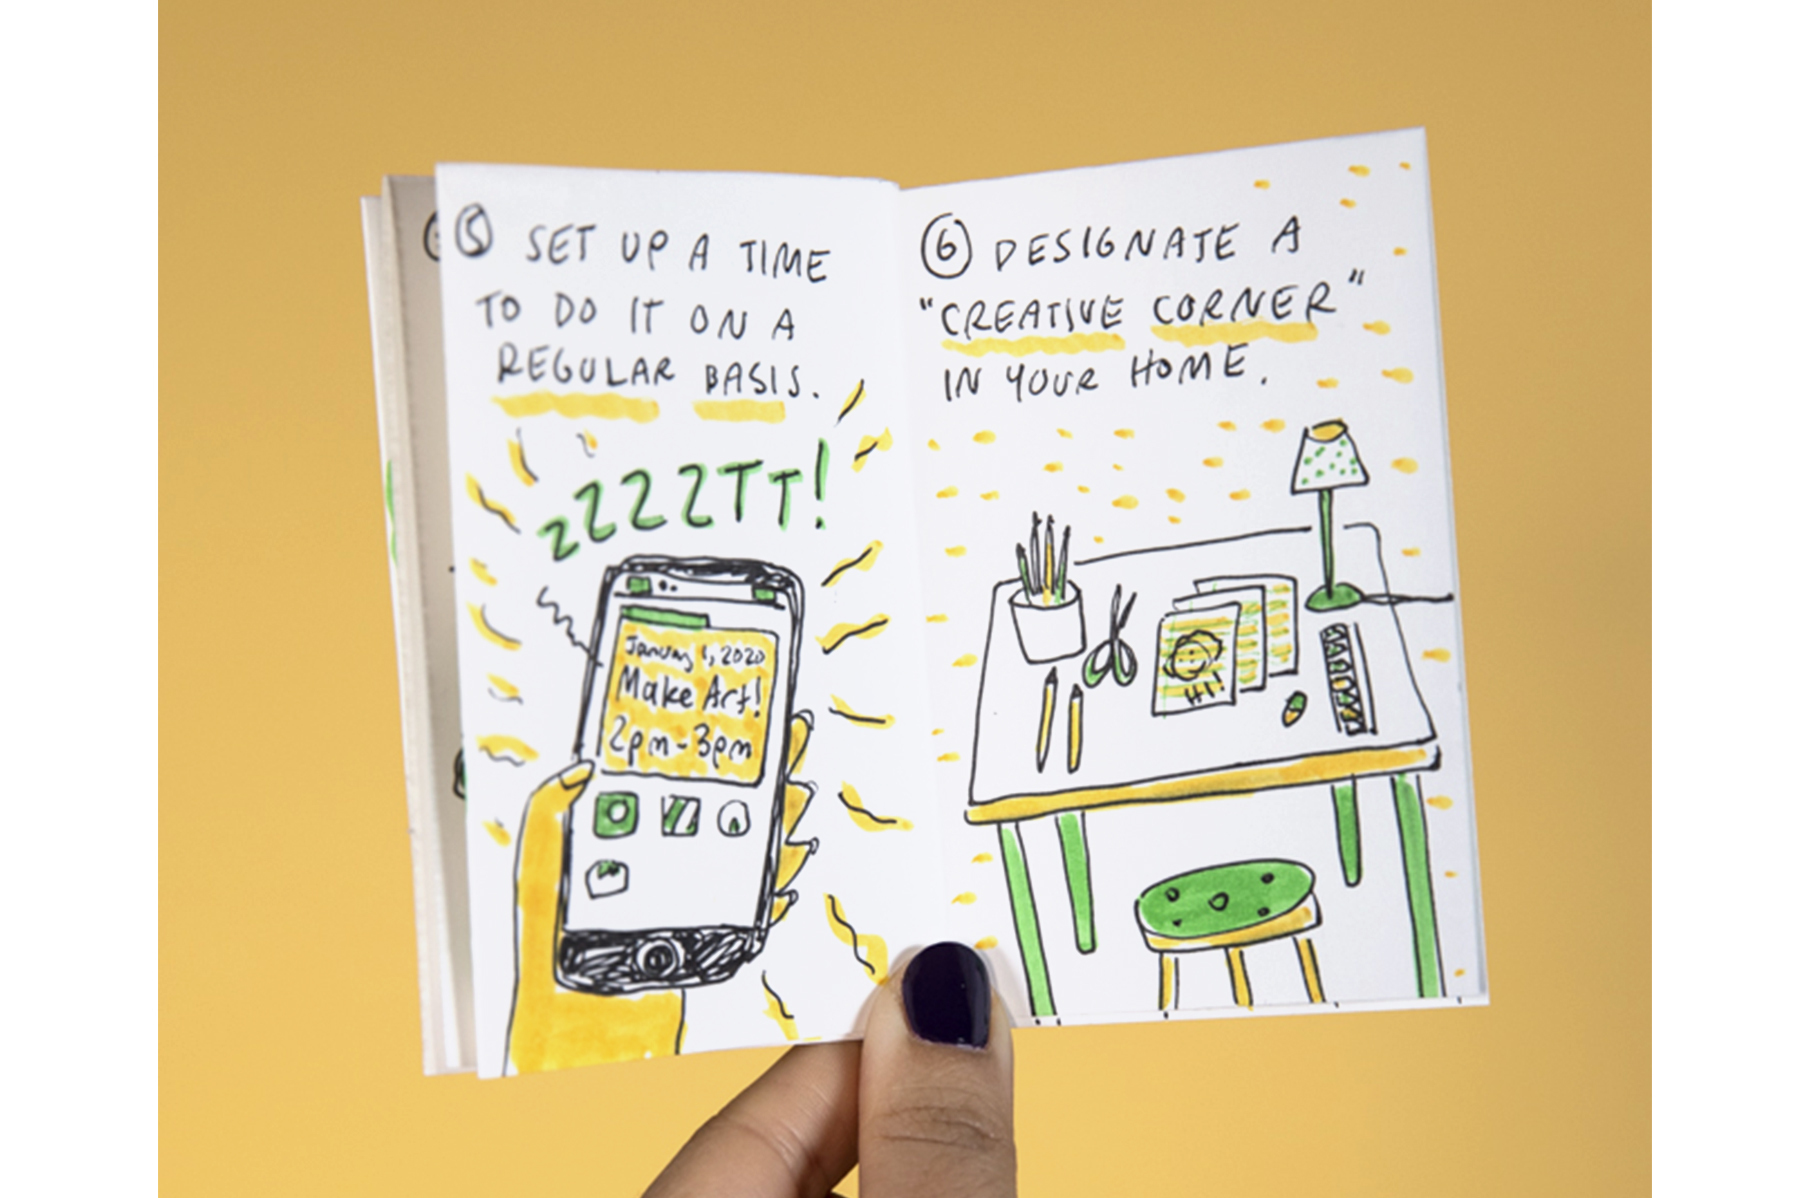 ⑤ SET UP A TIME
TO DO IT ON A
REGULAR BASIS.
zZZZTT!
January 1, 2020
Make Art!
2pm-3pm
⑥ DESIGNATE A
"CREATIVE CORNER"
IN YOUR HOME.
HI!